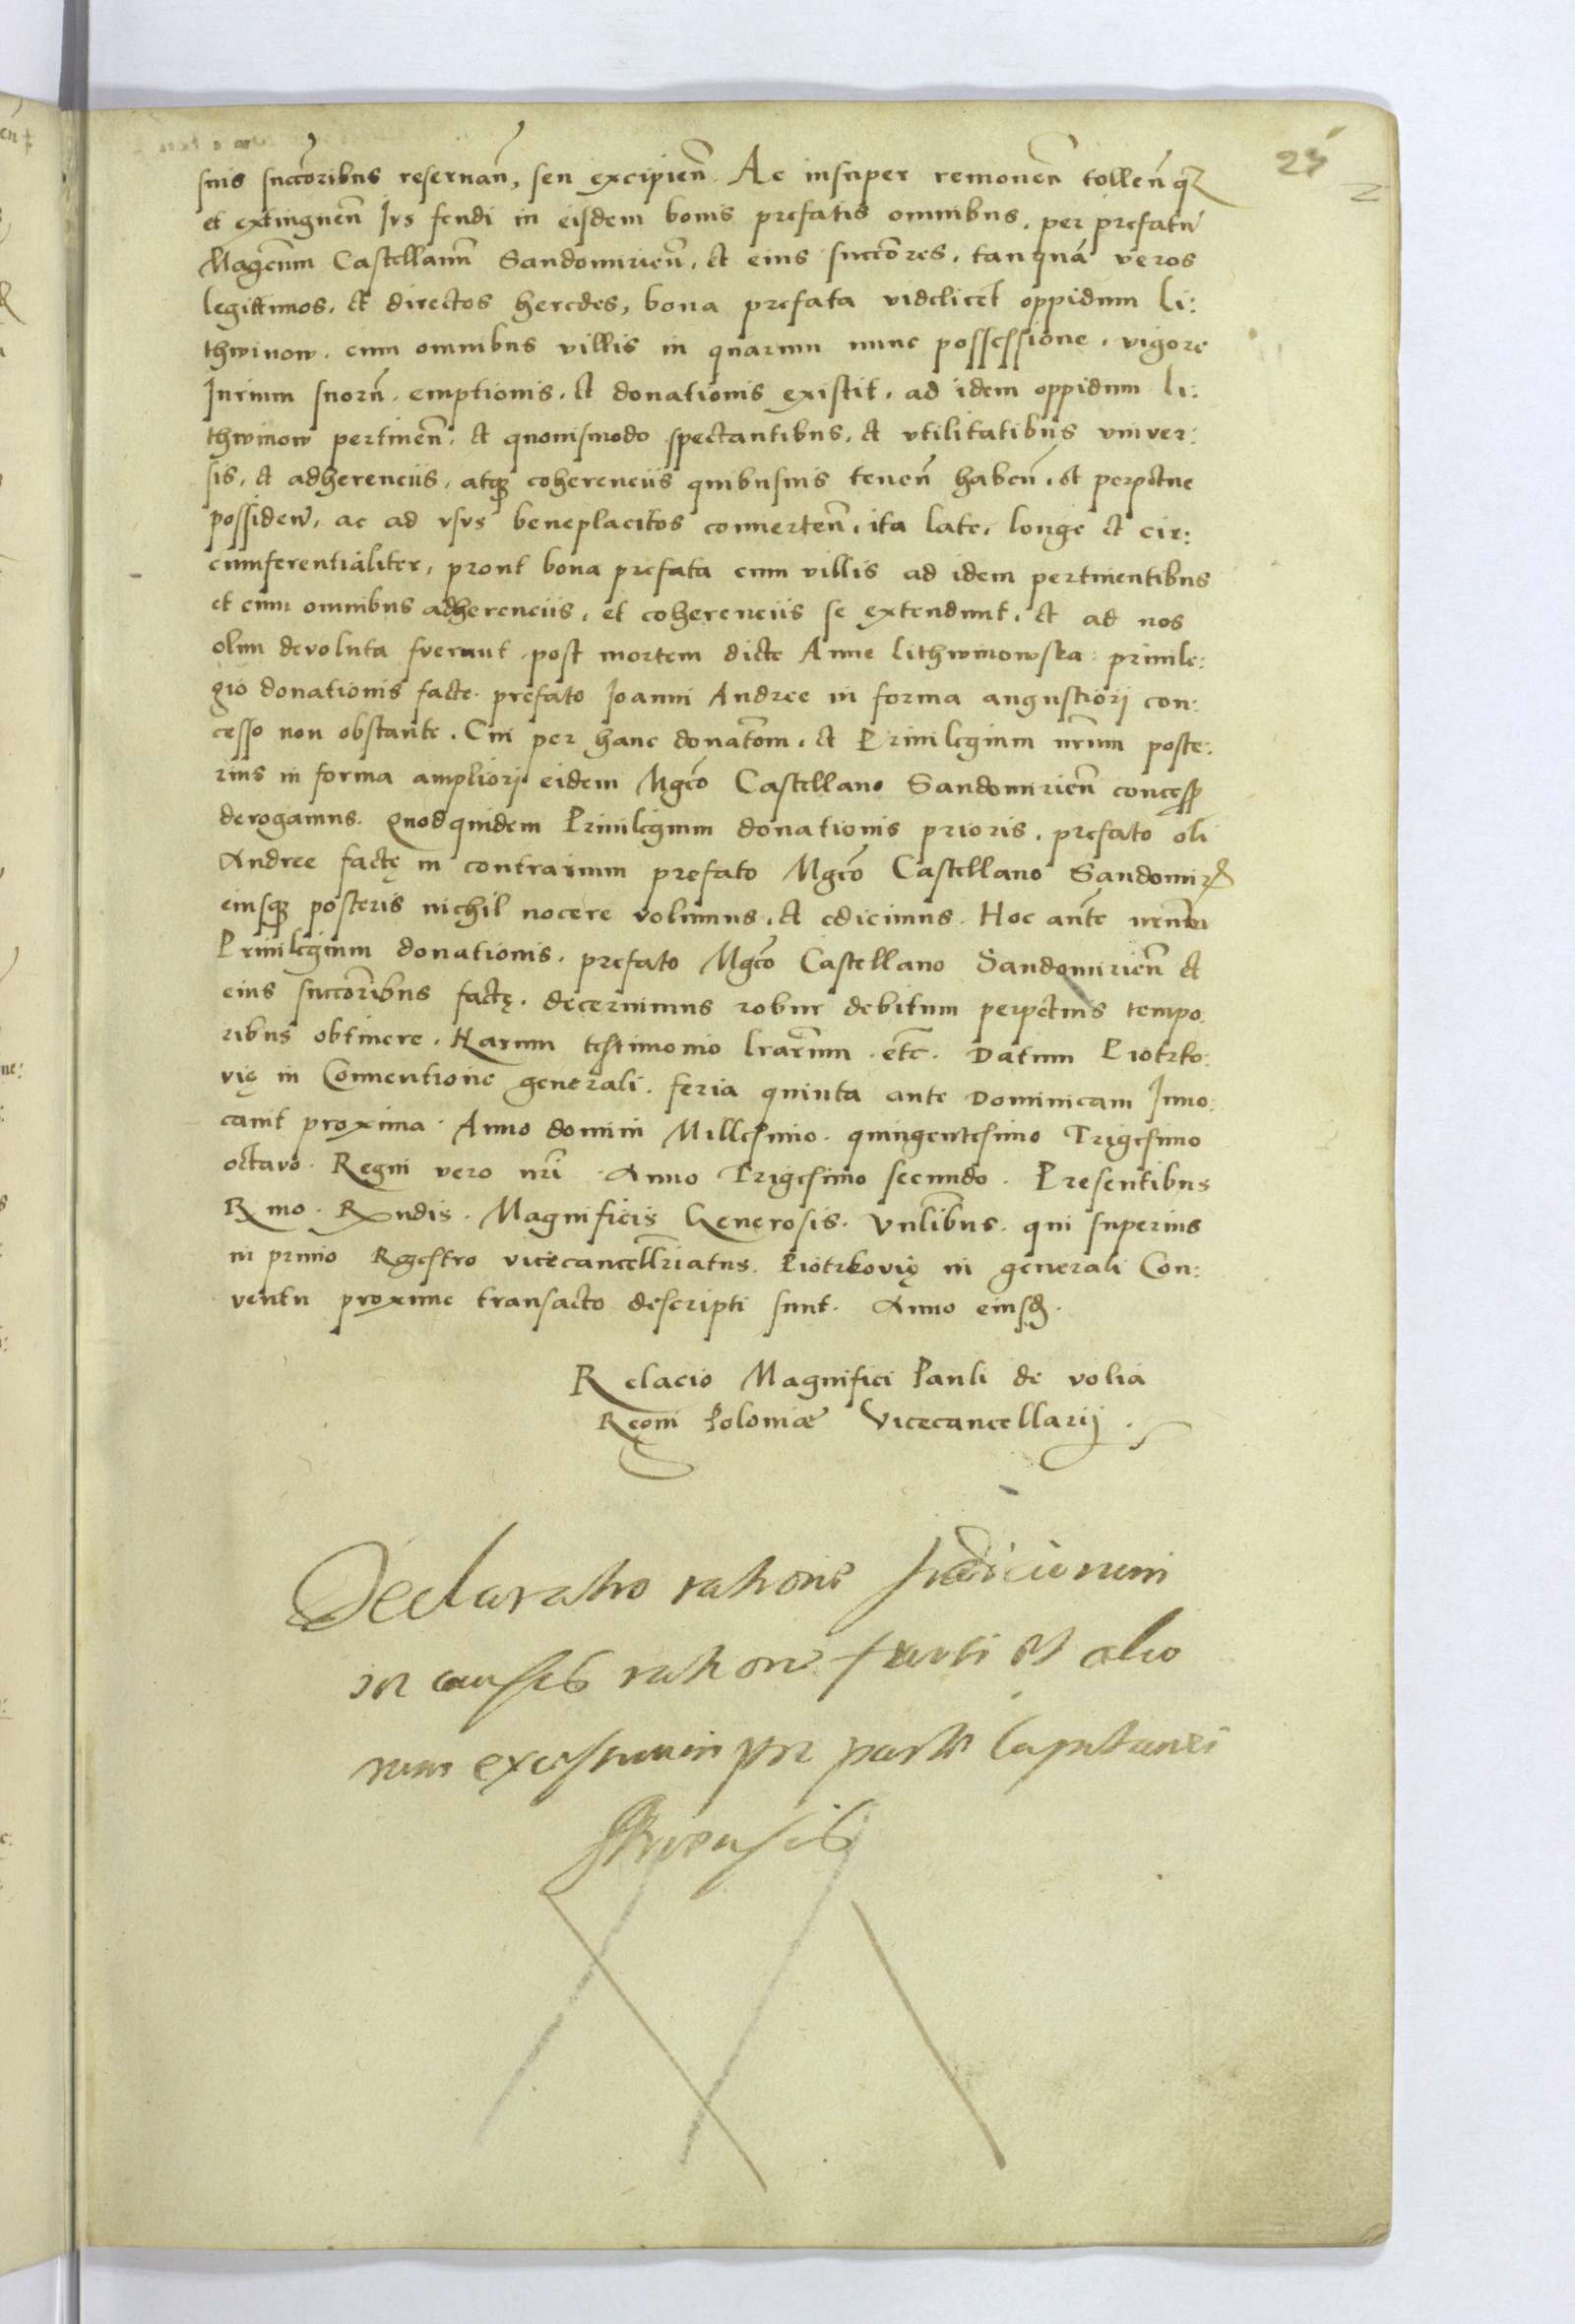 23
2
suis succ̃oribus reseruan̄, seu excipien̄ Ac insuper remouen̄ tollen̄ qȝ
et extinguen̄ Jvs feudi in eisdem bonis prefatis omnibus, per prefatū
Magcũm Castellanū Sandomirien̄, et eius succ̃ores, tanquā veros
legittimos, et directos heredes, bona prefata videlicet oppidum Li:
thwinow, cum omnibus villis in quarum nunc possessione, vigore
Jurium suorū, emptionis, et donationis existit, ad idem oppidum Li:
thwinow pertinen̄, et quouismodo spectantibus, et vtilitatibus vniver:
sis, et adherenciis, atqȝ coherenciis quibusuis tenen̄ haben̄, et perpetue
possiden̄, ac ad vsvs beneplacitos conuerten̄, ita late, longe et cir:
cumferentialiter, prout bona prefata cum villis ad idem pertinentibus
et cum omnibus adherenciis, et coherenciis se extendunt, et ad nos
olim devoluta fverunt post mortem dicte Anne Lithwinowska: priuile:
gio donationis facte prefato Joanni Andree in forma angustiorj con:
cesso non obstante. Cui per hanc donatõem, et Priuilegium nr̃um poste:
rius in forma ampliorj eidem Mgc̃o Castellano Sandomirien̄ concess̃
derogamus. Quodquidem Priuilegium donationis prioris, prefato oli
Andree factę in contrarium prefato Mgc̃o Castellano Sandomir̃
eiusqȝ posteris nichil nocere volumus, et edicimus. Hoc aut̃e nr̃um
Priuilegium donationis, prefato Mgc̃o Castellano Sandomirien̄ et
eius succ̃oribus factę, decernimus robur debitum perpetuis tempo:
ribus obtinere. Harum testimonio l̃rarum etc̃. Datum Piotrko:
vię in Conuentione generali. feria quinta ante Dominicam Inuo:
cauit proxima. Anno domini Millesimo quingentesimo Trigesimo
octavo. Regni vero nr̃i Anno Trigesimo secundo. Presentibus
Rmo. Rndis. Magnificis Generosis. Vnl̃ibus. qui superius
in primo Regestro vicecancell̃riatus. Piotrkovię in generali Con:
ventu proxime transacto descripti sunt. Anno eiusd̃.
Relacio Magnifici Pauli de volia
Regni Poloniæ Vicecancellarij.
Declaratio rationé Judiciorum
in causis rationé furti et alio
rum excessuum pro parte Capitanei